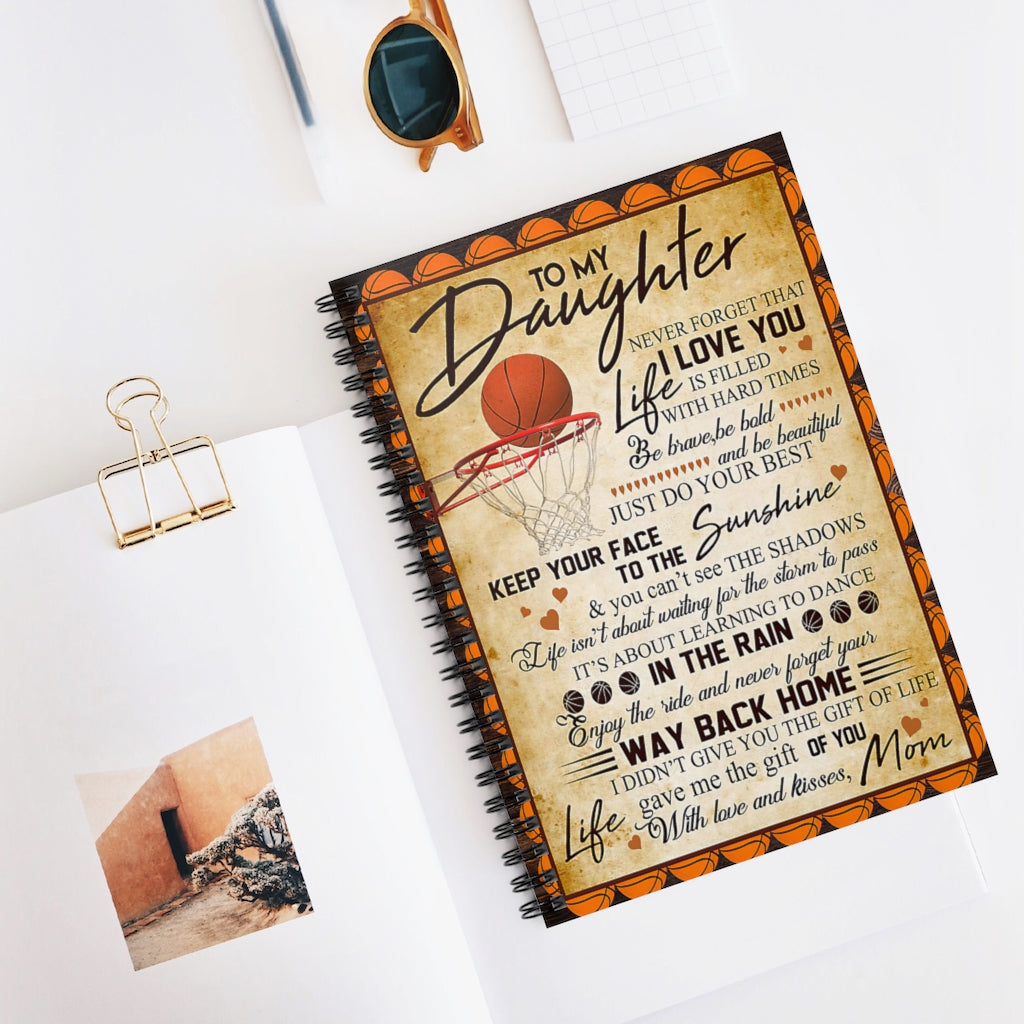 TO MY
Daughter
NEVER FORGET THAT
I LOVE YOU
Life IS FILLED
WITH HARD TIMES
Be brave,be bold
and be beautiful
JUST DO YOUR BEST
KEEP YOUR FACE
TO THE Sunshine
& you can't see THE SHADOWS
Life isn't about waiting for the storm to pass
IT'S ABOUT LEARNING TO DANCE
IN THE RAIN
Enjoy the ride and never forget your
WAY BACK HOME
I DIDN'T GIVE YOU THE GIFT OF LIFE
Life gave me the gift OF YOU
With love and kisses, Mom